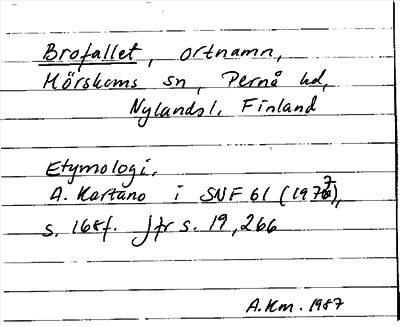 Brofallet, ortnamn,
Mörskoms sn, Pernå hd,
Nylandsl. Finland
Etymologi.
A. Kartano i SNF 61 (1977),
s. 168f. Jfr s. 19, 266
A.Km. 1987